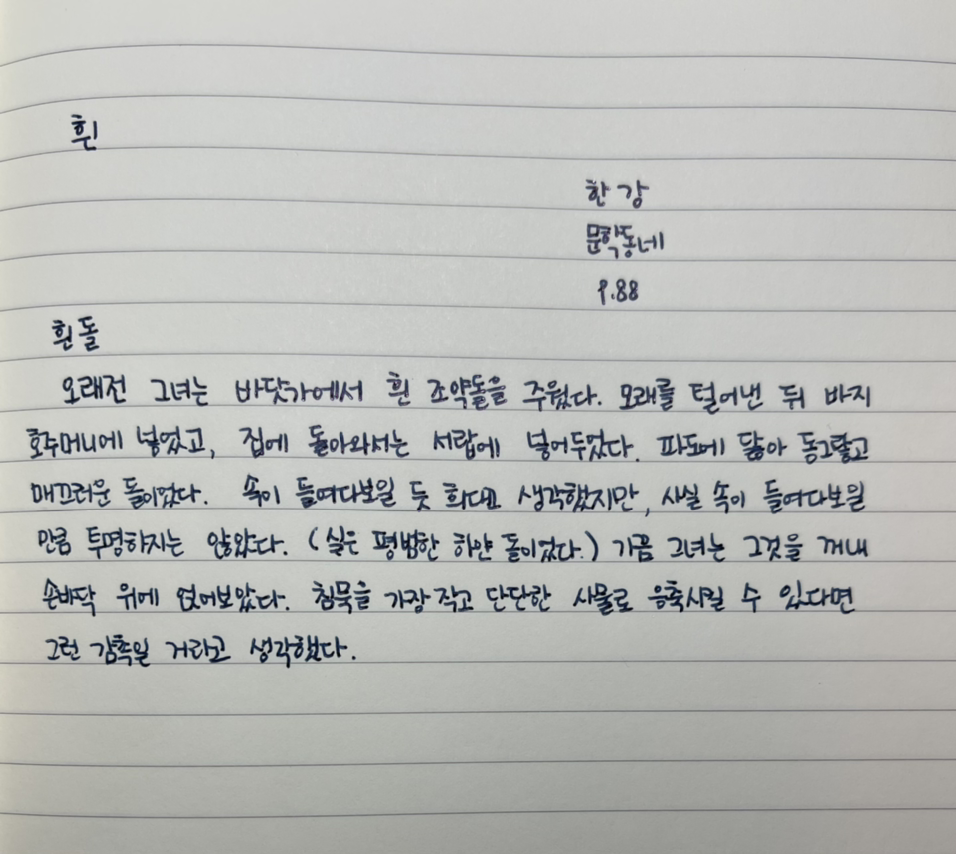 흰
한강
문학동네
P.88
흰 돌
오래전 그녀는 바닷가에서 흰 조약돌을 주웠다. 모래를 털어낸 뒤 바지
호주머니에 넣었고, 집에 돌아와서는 서랍에 넣어두었다. 파도에 닳아 동그랗고
매끄러운 돌이었다. 속이 들여다보일 듯 희다고 생각했지만, 사실 속이 들여다보일
만큼 투명하지는 않았다. (실은 평범한 하얀 돌이었다.) 가끔 그녀는 그것을 꺼내
손바닥 위에 얹어보았다. 침묵을 가장 작고 단단한 사물로 응축시킬 수 있다면
그런 감촉일 거라고 생각했다.